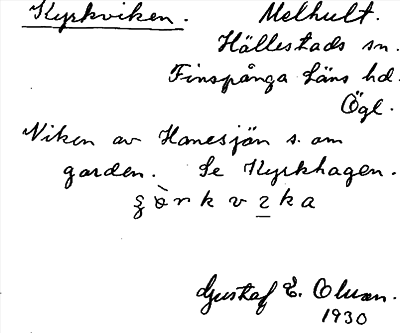 Kyrkviken. Melhult.
Hällestads sn.
Finspånga läns hd.
Ögl.
Viken av Hanesjön s. om
garden. Se Kyrkhagen.
Gustaf E. Olsson.
1930